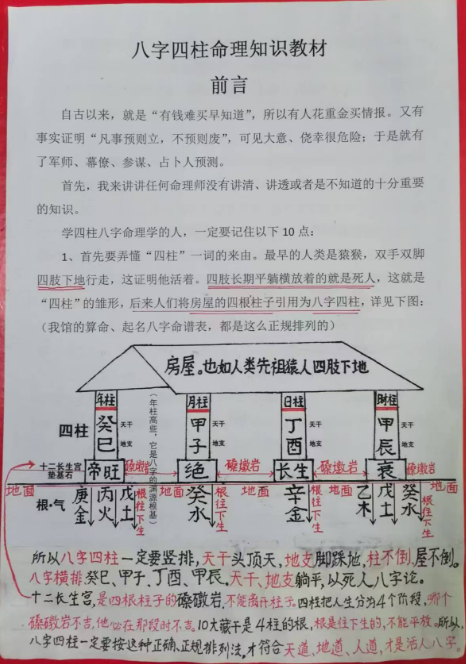 八字四柱命理知识教材
前言
自古以来，就是“有钱难买早知道”，所以有人花重金买情报。又有
事实证明“凡事预则立，不预则废”，可见大意、侥幸很危险；于是就有
了军师、幕僚、参谋、占卜人预测。
首先，我来讲讲任何命理师没有讲清、讲透或者是不知道的十分重要
的知识。
学四柱八字命理学的人，一定要记住以下 10 点：
1、首先要弄懂“四柱”一词的来由。最早的人类是猿猴，双手双脚
四肢下地行走，这证明他活着。四肢长期平躺横放着的就是死人，这就是
“四柱”的雏形，后来人们将房屋的四根柱子引用为八字四柱，详见下图：
（我馆的算命、起名八字命谱表，都是这么正规排列的）
房屋。也如人类先祖猿人四肢下地
年柱 月柱 日柱 时柱
四柱
癸巳 天干 地支
（年柱高些，它是八字的渊源根基）
甲子 天干 地支
丁酉 天干 地支
甲辰 天干 地支
十二长生宫
垫基石
帝旺 磉墩岩 绝 磉墩岩 长生 磉墩岩 衰 磉墩岩
地面 地面 地面 地面 地面
根·气
庚金 丙火 戊土 根往下生
癸水 根往下生
辛金 根往下生
乙木 戊土 癸水 根往下生
所以八字四柱一定要竖排，天干头顶天，地支脚踩地，柱不倒，屋不倒。
八字横排癸巳、甲子、丁酉、甲辰，天干、地支躺平，以死人八字论。
十二长生宫，是四根柱子的磉墩岩，不能离开柱子。四柱把人生分为4个阶段，哪个
磉墩岩不吉，他必在那段时不吉。10大藏干是4柱的根，根是往下生的，不能平放。所以，
八字四柱一定要按这种正确、正规排列法，才符合天道、地道、人道，才是活人八字。